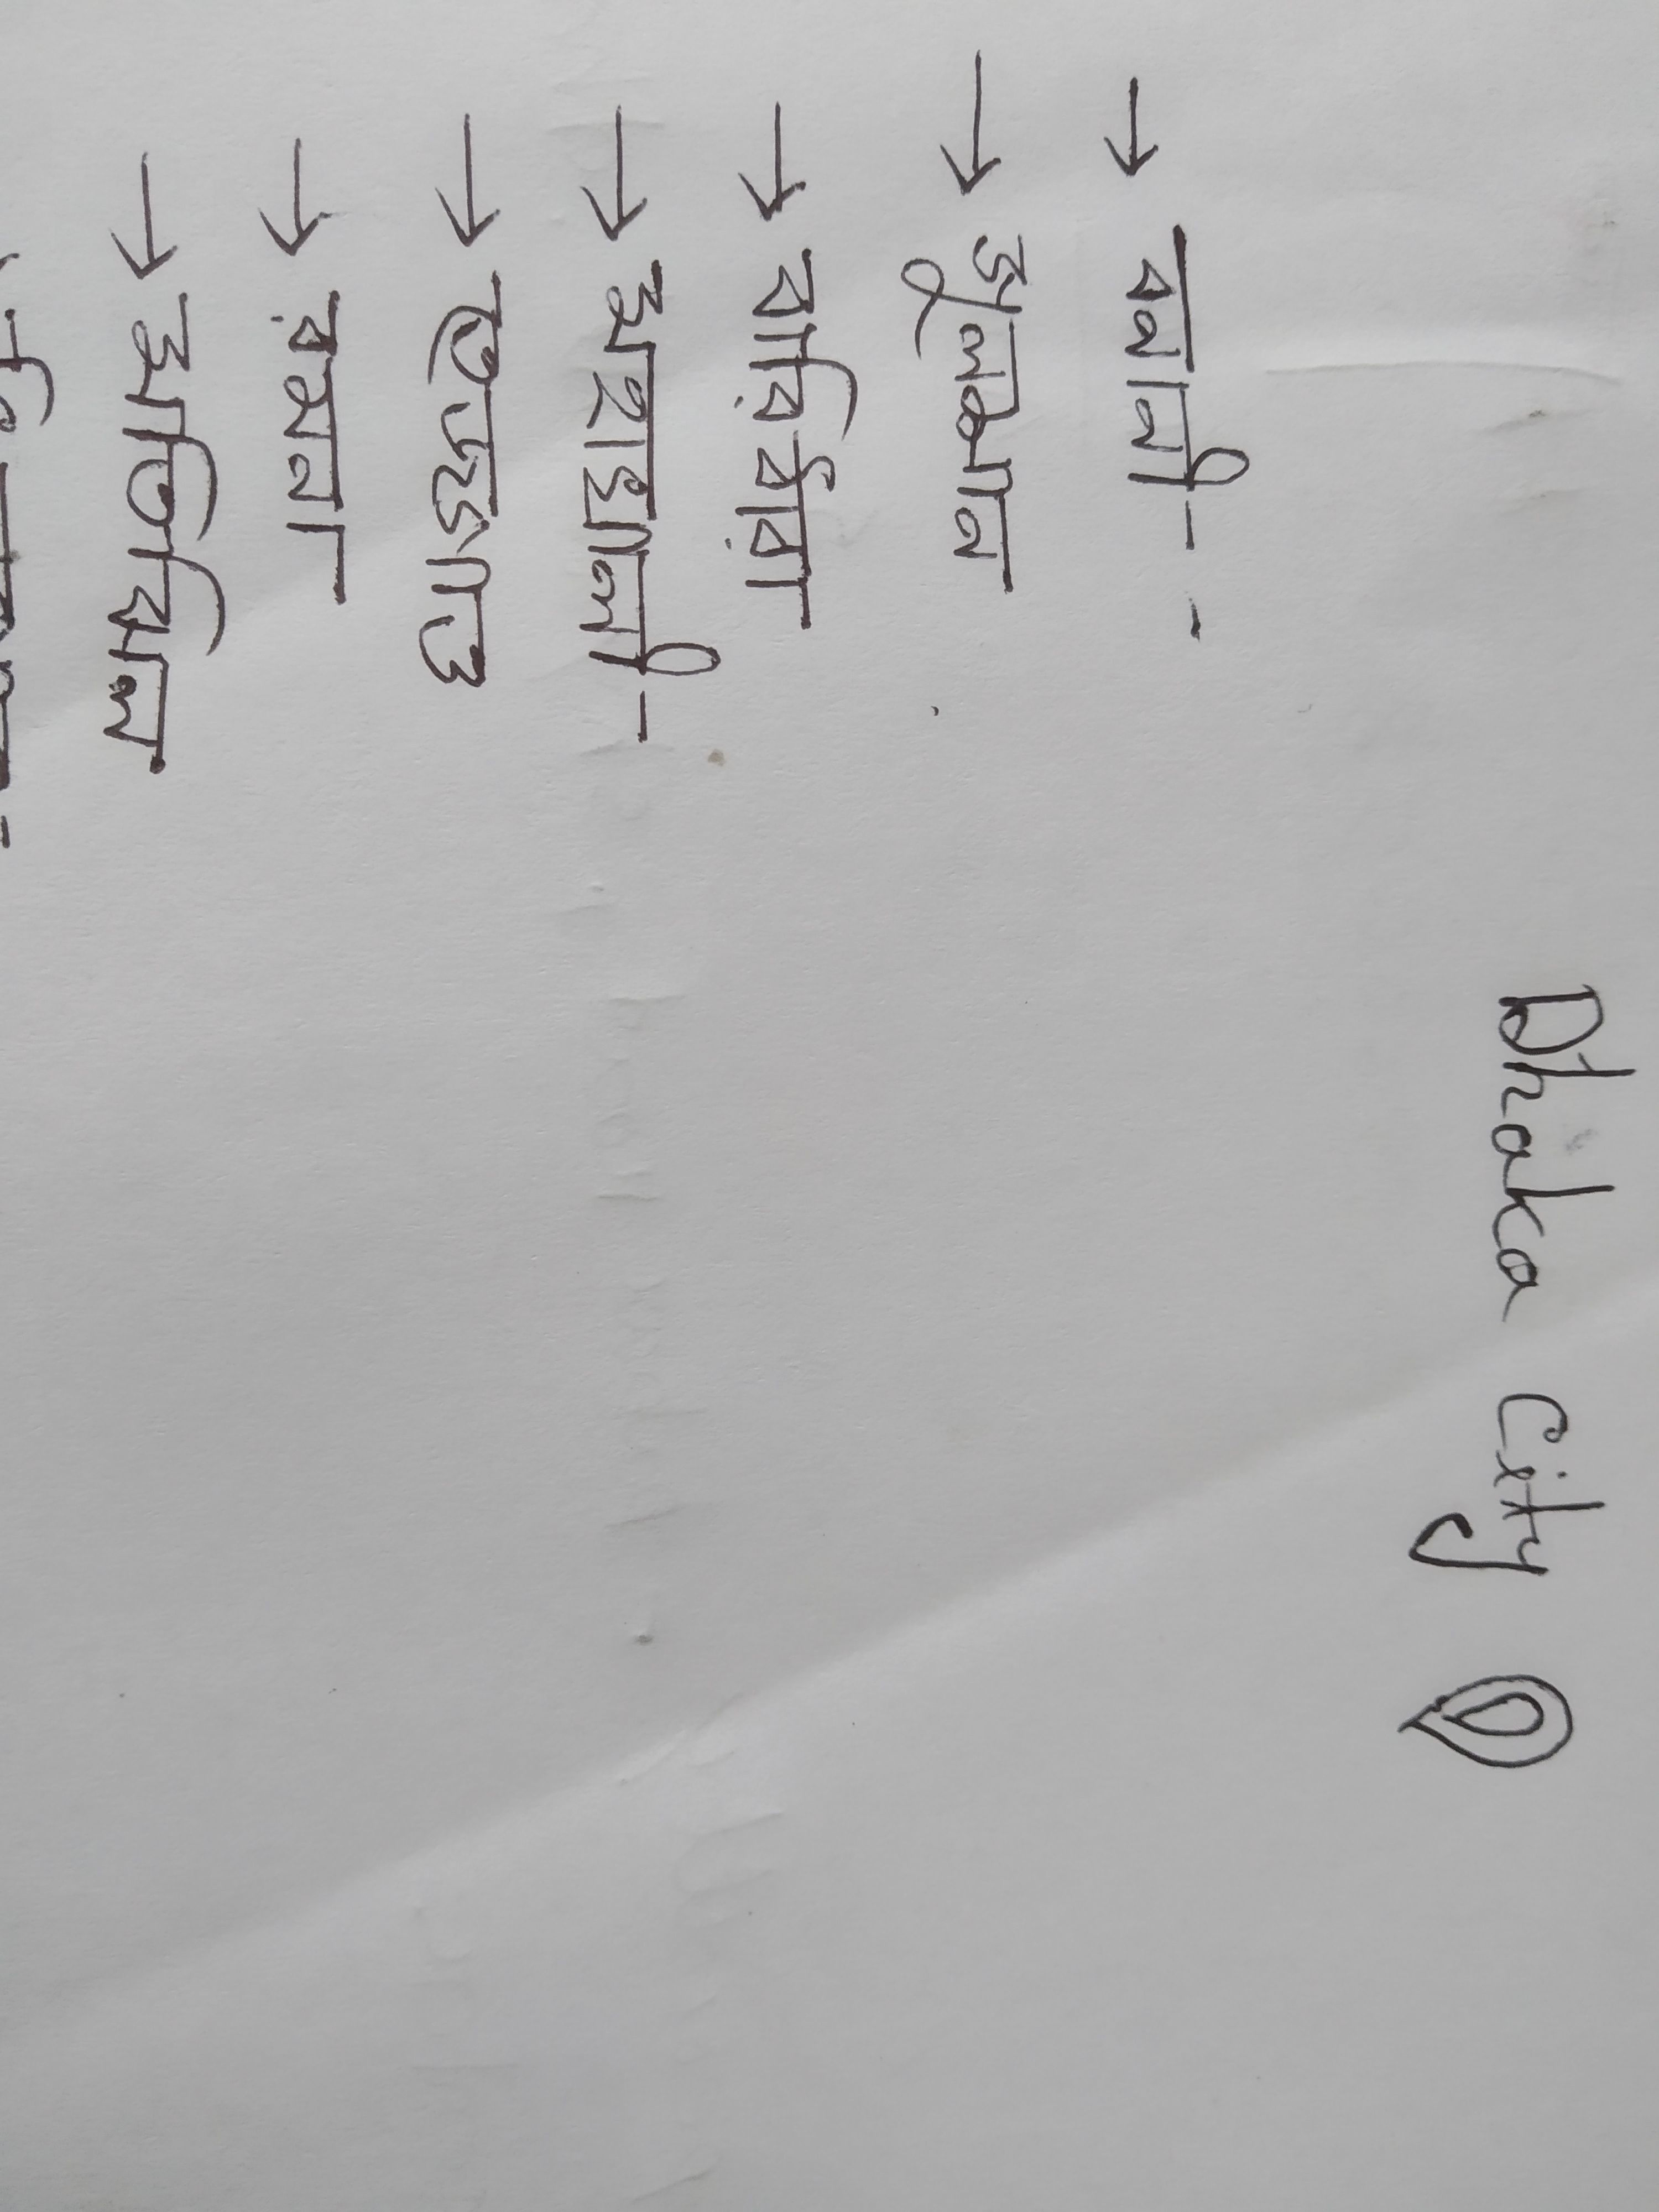 Dhaka City
→ বনানী
→ গুলশান
→ বারিধারা
→ মহাখালী
→ তেজগাঁও
→ রমনা
→ মতিঝিল